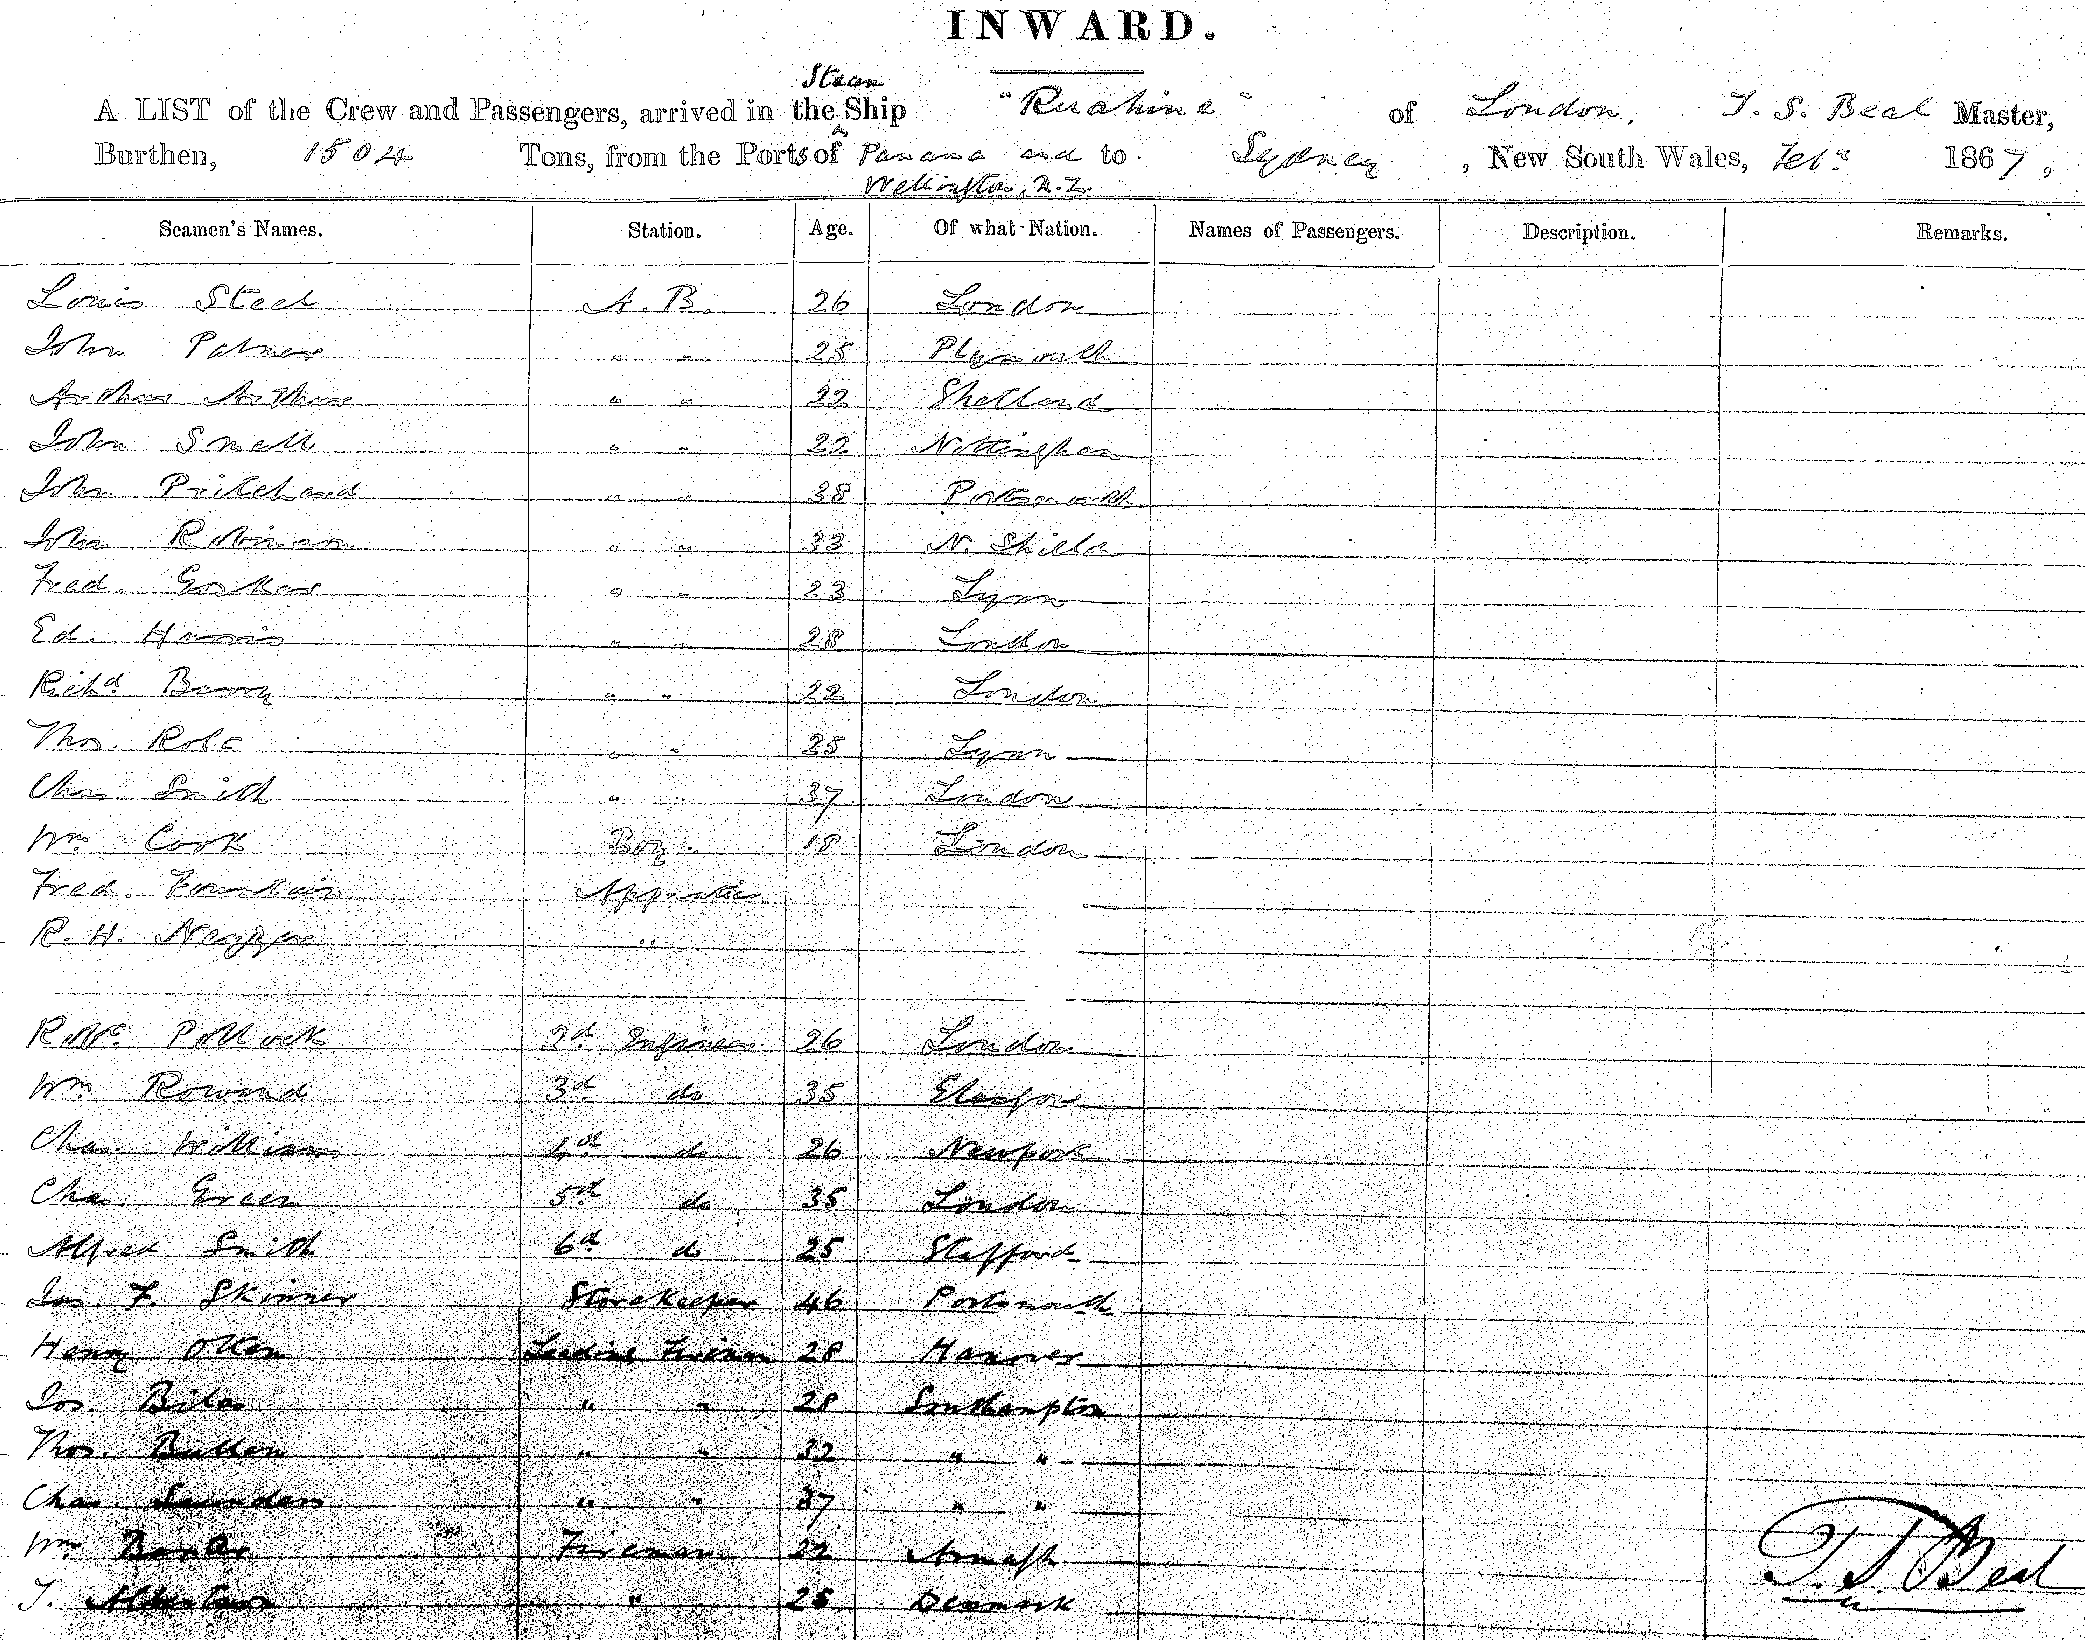 INWARD.
Steam
A LIST of the Crew and Passengers, arrived in the Ship "Ruahine" of London, T. S. Beal Master,
Burthen, 1504 Tons, from the Ports of Panama and to Sydney, New South Wales, Feby 1867,
Wellington, N.Z.
Seamen's Names. Station. Age. Of what Nation. Names of Passengers. Description. Remarks.
Louis Steel A.B. 26 London
John Palmer " " 25 Plymouth
Arthur Arthur " " 22 Shetland
John Smell " " 22 Nottingham
John Pritchard " " 38 Portsmouth
John Robinson " " 33 N. Shields
Fred. " " 23 Lynn
Ed. Harris " " 28 London
Richd Barry " " 22 London
Thos. Role " " 25 Lynn
Chas. Smith " " 37 London
Wm. Cook Boy. 18 London
Fred. Fountain
R. H. "
Robt. Pollock 2d Engineer 26 London
Wm Rowand 3d do 35 Glasgow
Chas. Williams 4th do 26 Newport
Chas. Green 5th do 35 London
Alfred Smith 6th do 25 Stafford
Jas. F. Skinner Storekeeper 46 Portsmouth
Henry Otten Leading Fireman 28 Hanover
Jos. " " 28 Southampton
Thos. Bullen " " 32 " "
Chas. Saunders " " 37 " "
Wm. Fireman 22 Armagh
T. " 25 Denmark
T. S. Beal